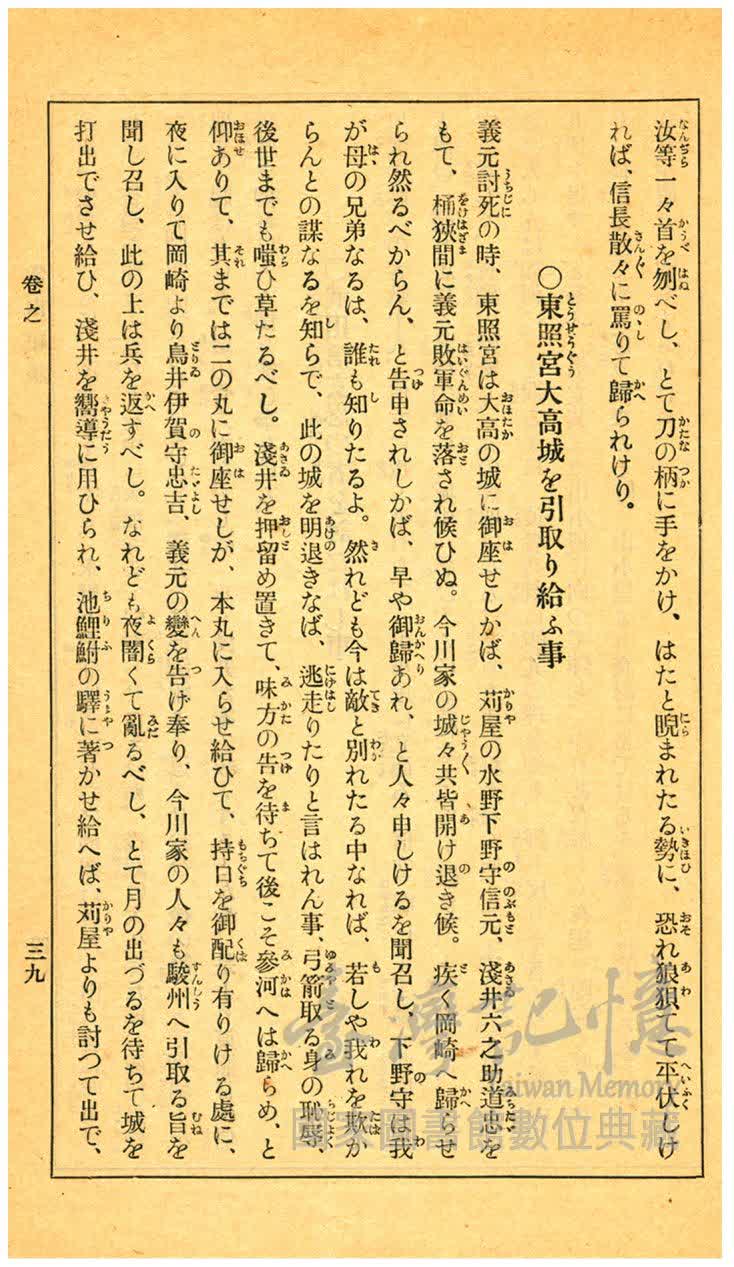 汝等一々首を刎べし、とて刀の柄に手をかけ、はたと睨まれたる勢に、恐れ狼狽てて平伏しけ
れば、信長散々に罵りて歸られけり。
〇東照宮大高城を引取り給ふ事
義元討死の時、東照宮は大高の城に御座せしかば、苅屋の水野下野守信元、淺井六之助道忠を
もて、桶狹間に義元敗軍命を落され候ひぬ。今川家の城々共皆開け退き候。疾く岡崎へ歸らせ
られ然るべからん、と告申されしかば、早や御歸あれ、と人々申しけるを聞召し、下野守は我
が母の兄弟なるは、誰も知りたるよ。然れども今は敵と別れたる中なれば、若しや我れを欺か
らんとの謀なるを知らで、此の城を明退きなば、逃走りたりと言はれん事、弓箭取る身の恥辱、
後世までも嗤ひ草たるべし。淺井を押留め置きて、味方の告を待ちて後こそ參河へは歸らめ、と
仰ありて、其までは二の丸に御座せしが、本丸に入らせ給ひて、持口を御配り有りける處に、
夜に入りて岡崎より鳥井伊賀守忠吉、義元の變を告げ奉り、今川家の人々も駿州へ引取る旨を
聞し召し、此の上は兵を返すべし。なれども夜闇くて亂るべし、とて月の出づるを待ちて城を
打出でさせ給ひ、淺井を嚮導に用ひられ、池鯉鮒の驛に著かせ給へば、苅屋よりも討つて出で、
卷之
三九
臺灣記憶
Taiwan Memory
國家圖書館數位典藏